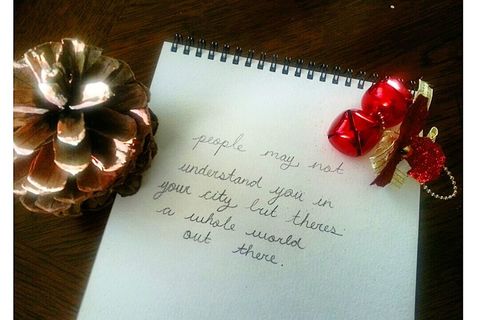 people may not
understand you in
your city but theres
a whole world
out there.